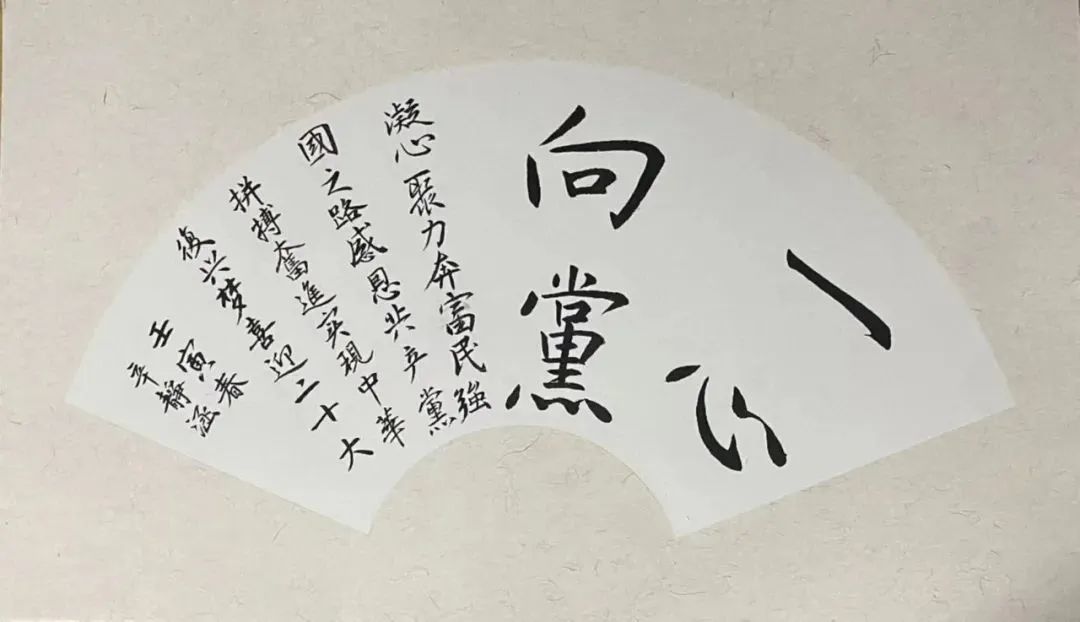 一心
向黨
凝心聚力奔富民強
國之路感恩共产黨
拼搏奮進实現中華
復兴梦喜迎二十大
壬寅春
辛靜涵